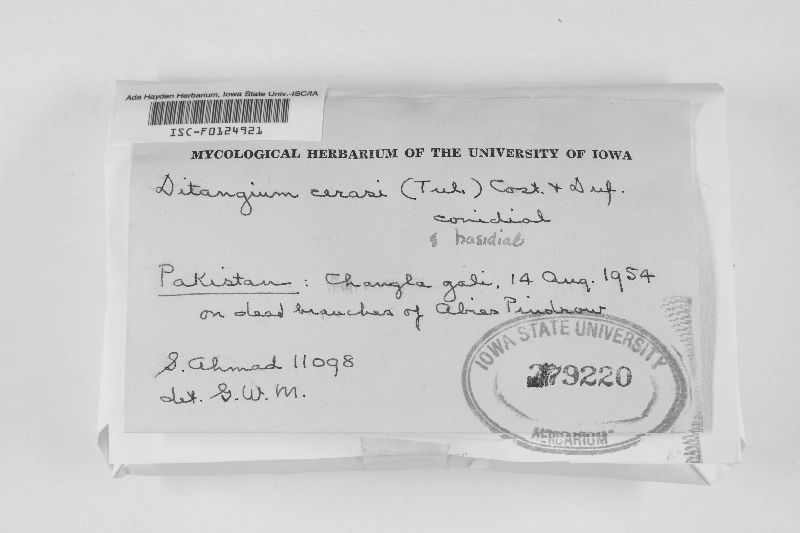 Ada Hayden Herbarium, Iowa State Univ.-ISC/IA
ISC-F0124921
MYCOLOGICAL HERBARIUM OF THE UNIVERSITY OF IOWA
Ditangium cerasi (Tul.) Cost. & Duf.
conidial
& basidial
Pakistan: Changla gali, 14 Aug. 1954
on dead branches of Abies Pindrow
S. Ahmad 11098
det. G. W. M.
IOWA STATE UNIVERSITY
279220
HERBARIUM